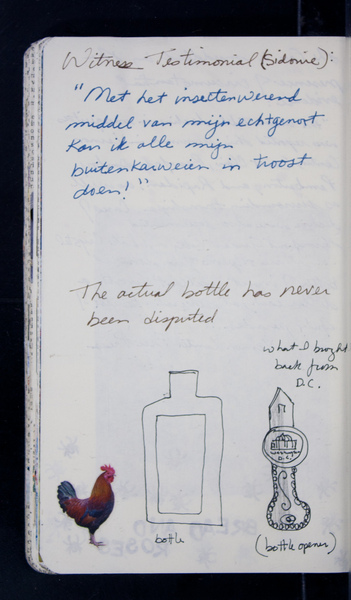 Witness Testimonial (Sidonie):
"Met het insectenwerend
middel van mijn echtgenoot
kan ik alle mijn
buitenkarweien in troost
doen!"
The actual bottle has never
been disputed
what I brought
back from
D.C.
D.C.
bottle
(bottle opener)
BREAD AND
ROSES